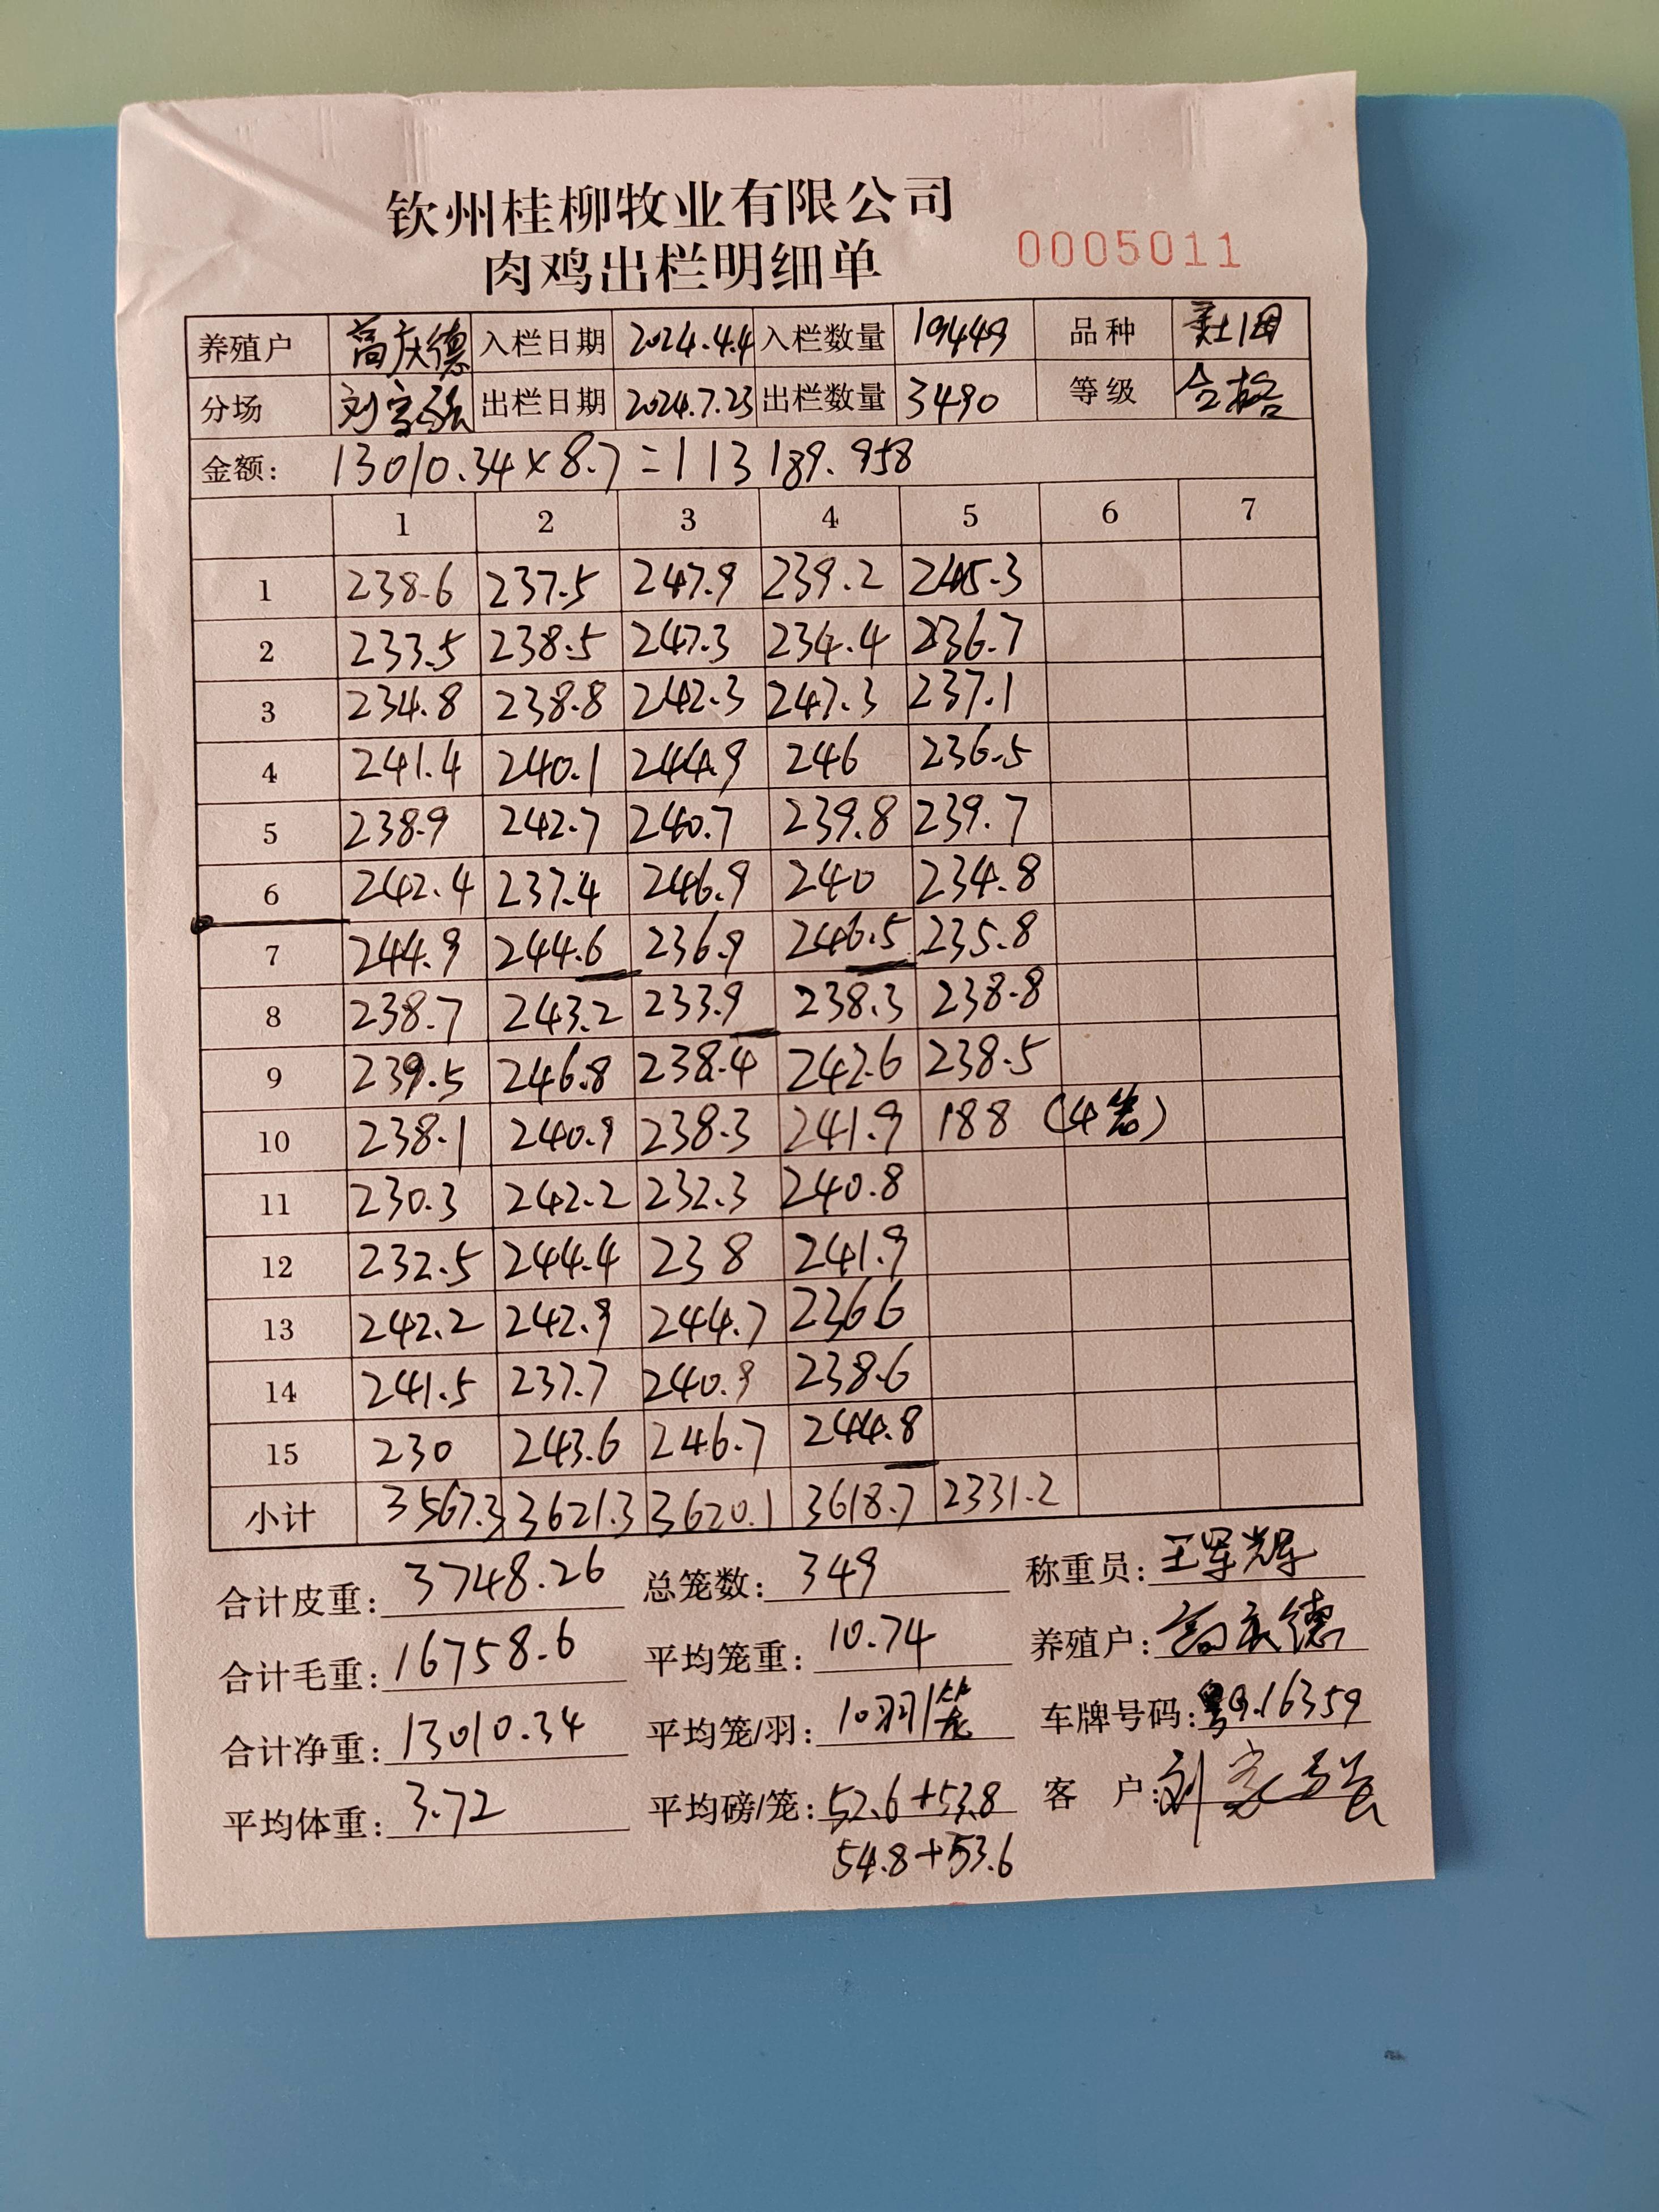 钦州桂柳牧业有限公司
肉鸡出栏明细单 0005011
养殖户 高庆德 入栏日期 2024.4.4 入栏数量 19449 品种
分场 刘家强 出栏日期 2024.7.23 出栏数量 3490 等级 合格
金额: 13010.34×8.7=113189.958
1 2 3 4 5 6 7
1 238.6 237.5 247.9 239.2 245.3
2 233.5 238.5 247.3 234.4 236.7
3 234.8 238.8 242.3 247.3 237.1
4 241.4 240.1 244.9 246 236.5
5 238.9 242.7 240.7 239.8 239.7
6 242.4 237.4 246.9 240 234.8
7 244.9 244.6 236.9 246.5 235.8
8 238.7 243.2 233.9 238.3 238.8
9 239.5 246.8 238.4 242.6 238.5
10 238.1 240.9 238.3 241.9 188 (4笼)
11 230.3 242.2 232.3 240.8
12 232.5 244.4 238 241.9
13 242.2 242.9 244.7 236.6
14 241.5 237.7 240.9 238.6
15 230 243.6 246.7 244.8
小计 3567.3 3621.3 3620.1 3618.7 2331.2
合计皮重: 3748.26 总笼数: 349 称重员: 王军辉
合计毛重: 16758.6 平均笼重: 10.74 养殖户: 高庆德
合计净重: 13010.34 平均笼/羽: 10羽/笼 车牌号码: 粤9.16359
平均体重: 3.72 平均磅/笼: 52.6+53.8 客 户: 刘家强
54.8+53.6